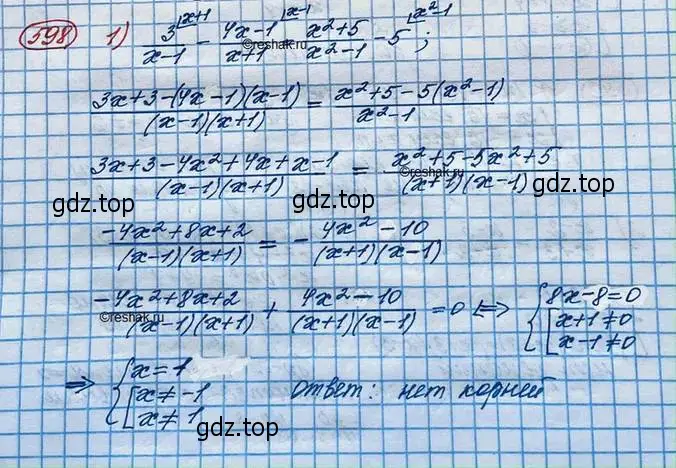 598 1) 3^{⌊x+1}/(x-1) - (4x-1)^{⌊x-1}/(x+1) = (x²+5)/(x²-1) - 5^{⌊x²-1};
©reshak.ru
(3x+3-(4x-1)(x-1))/((x-1)(x+1)) = (x²+5-5(x²-1))/(x²-1)
(3x+3-4x²+4x+x-1)/((x-1)(x+1)) = (x²+5-5x²+5)/((x+1)(x-1))
©reshak.ru
gdz.top gdz.top gdz.top
(-4x²+8x+2)/((x-1)(x+1)) = -(4x²-10)/((x+1)(x-1))
(-4x²+8x+2)/((x-1)(x+1)) + (4x²-10)/((x+1)(x-1)) = 0 ⇔ { 8x-8=0 [ x+1≠0 x-1≠0
©reshak.ru
⇒ { x=1 [ x≠-1 x≠1 ответ: нет корней
gdz.top gdz.top